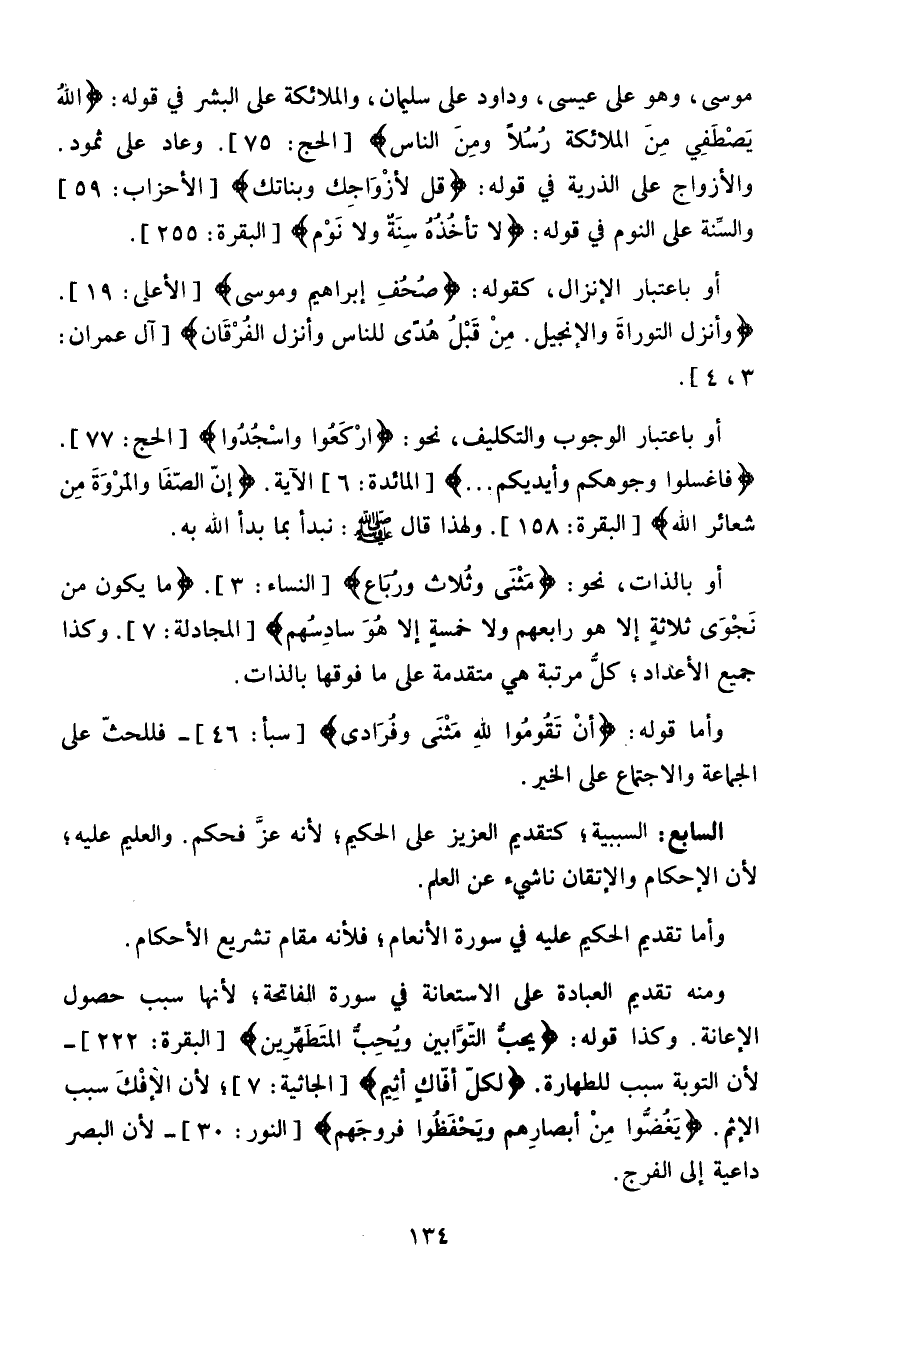 موسى، وهو على عيسى، وداود على سليمان، والملائكة على البشر في قوله: ﴿اللهُ
يَصْطَفِي مِنَ الملائكة رُسُلاً ومِنَ الناس﴾ [الحج: ٧٥]. وعاد على ثمود.
والأزواج على الذرية في قوله: ﴿قل لأزْوَاجِك وبناتك﴾ [الأحزاب: ٥٩]
والسِّنة على النوم في قوله: ﴿لا تأخُذُهُ سِنَةٌ ولا نَوْم﴾ [البقرة: ٢٥٥].
أو باعتبار الإنزال، كقوله: ﴿صُحُفِ إبراهيم وموسى﴾ [الأعلى: ١٩].
﴿وأنزل التوراةَ والإنجيل. مِنْ قَبْلُ هُدًى للناس وأنزل الفُرْقَان﴾ [آل عمران:
٣، ٤].
أو باعتبار الوجوب والتكليف، نحو: ﴿ارْكَعُوا واسْجُدُوا﴾ [الحج: ٧٧].
﴿فاغسلوا وجوهكم وأيديكم...﴾ [المائدة: ٦] الآية. ﴿إنّ الصّفَا والمَرْوَةَ مِن
شعائر الله﴾ [البقرة: ١٥٨]. ولهذا قال ﷺ: نبدأ بما بدأ الله به.
أو بالذات، نحو: ﴿مَثْنَى وثُلاث ورُبَاع﴾ [النساء: ٣]. ﴿ما يكون من
نَجْوَى ثلاثةٍ إلا هو رابعهم ولا خمسةٍ إلا هُوَ سادِسُهم﴾ [المجادلة: ٧]. وكذا
جميع الأعداد؛ كلُّ مرتبة هي متقدمة على ما فوقها بالذات.
وأما قوله: ﴿أنْ تَقُومُوا للهِ مَثْنَى وفُرَادى﴾ [سبأ: ٤٦] - فللحثّ على
الجماعة والاجتماع على الخير.
السابع: السببية؛ كتقديم العزيز على الحكيم؛ لأنه عزَّ فحكم. والعليم عليه؛
لأن الإحكام والإتقان ناشيء عن العلم.
وأما تقديم الحكيم عليه في سورة الأنعام؛ فلأنه مقام تشريع الأحكام.
ومنه تقديم العبادة على الاستعانة في سورة الفاتحة؛ لأنها سبب حصول
الإعانة. وكذا قوله: ﴿يحبُّ التّوَّابين ويُحِبُّ المتَطَهِّرِين﴾ [البقرة: ٢٢٢] -
لأن التوبة سبب للطهارة. ﴿لكلّ أفّاكٍ أثِيم﴾ [الجاثية: ٧]؛ لأن الإفْكَ سبب
الإثم. ﴿يَغُضُّوا مِنْ أبصارِهم ويَحْفَظُوا فروجَهم﴾ [النور: ٣٠] - لأن البصر
داعية إلى الفرج.
١٣٤